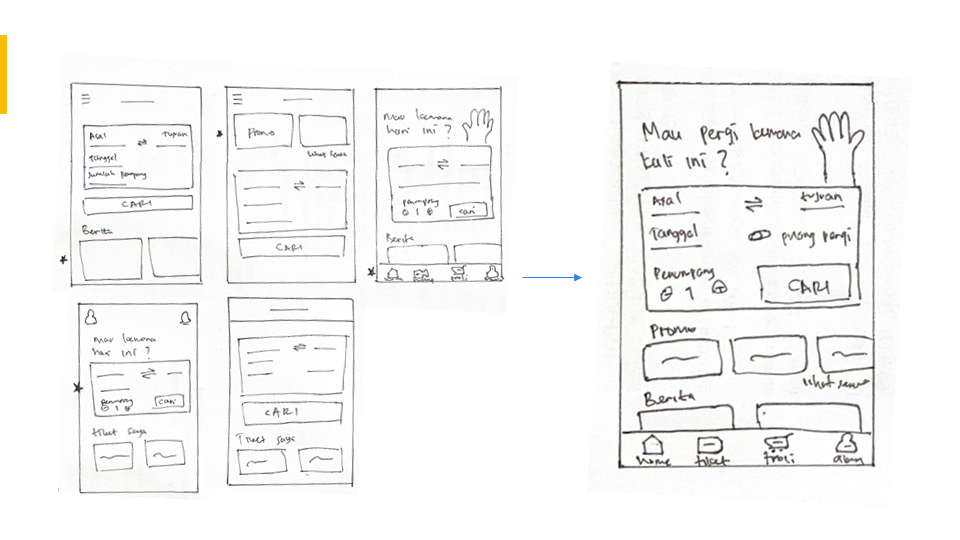 Asal
Tujuan
Tanggal
Jumlah penumpang
CARI
Berita
Promo
lihat semua
CARI
Mau kemana
hari ini ?
penumpang
1
cari
Berita
Mau kemana
hari ini ?
penumpang
1
cari
tiket saya
CARI
Tiket saya
Mau pergi kemana
kali ini ?
Asal
tujuan
Tanggal
pulang pergi
Penumpang
1
CARI
Promo
lihat semua
Berita
home
tiket
troli
akun